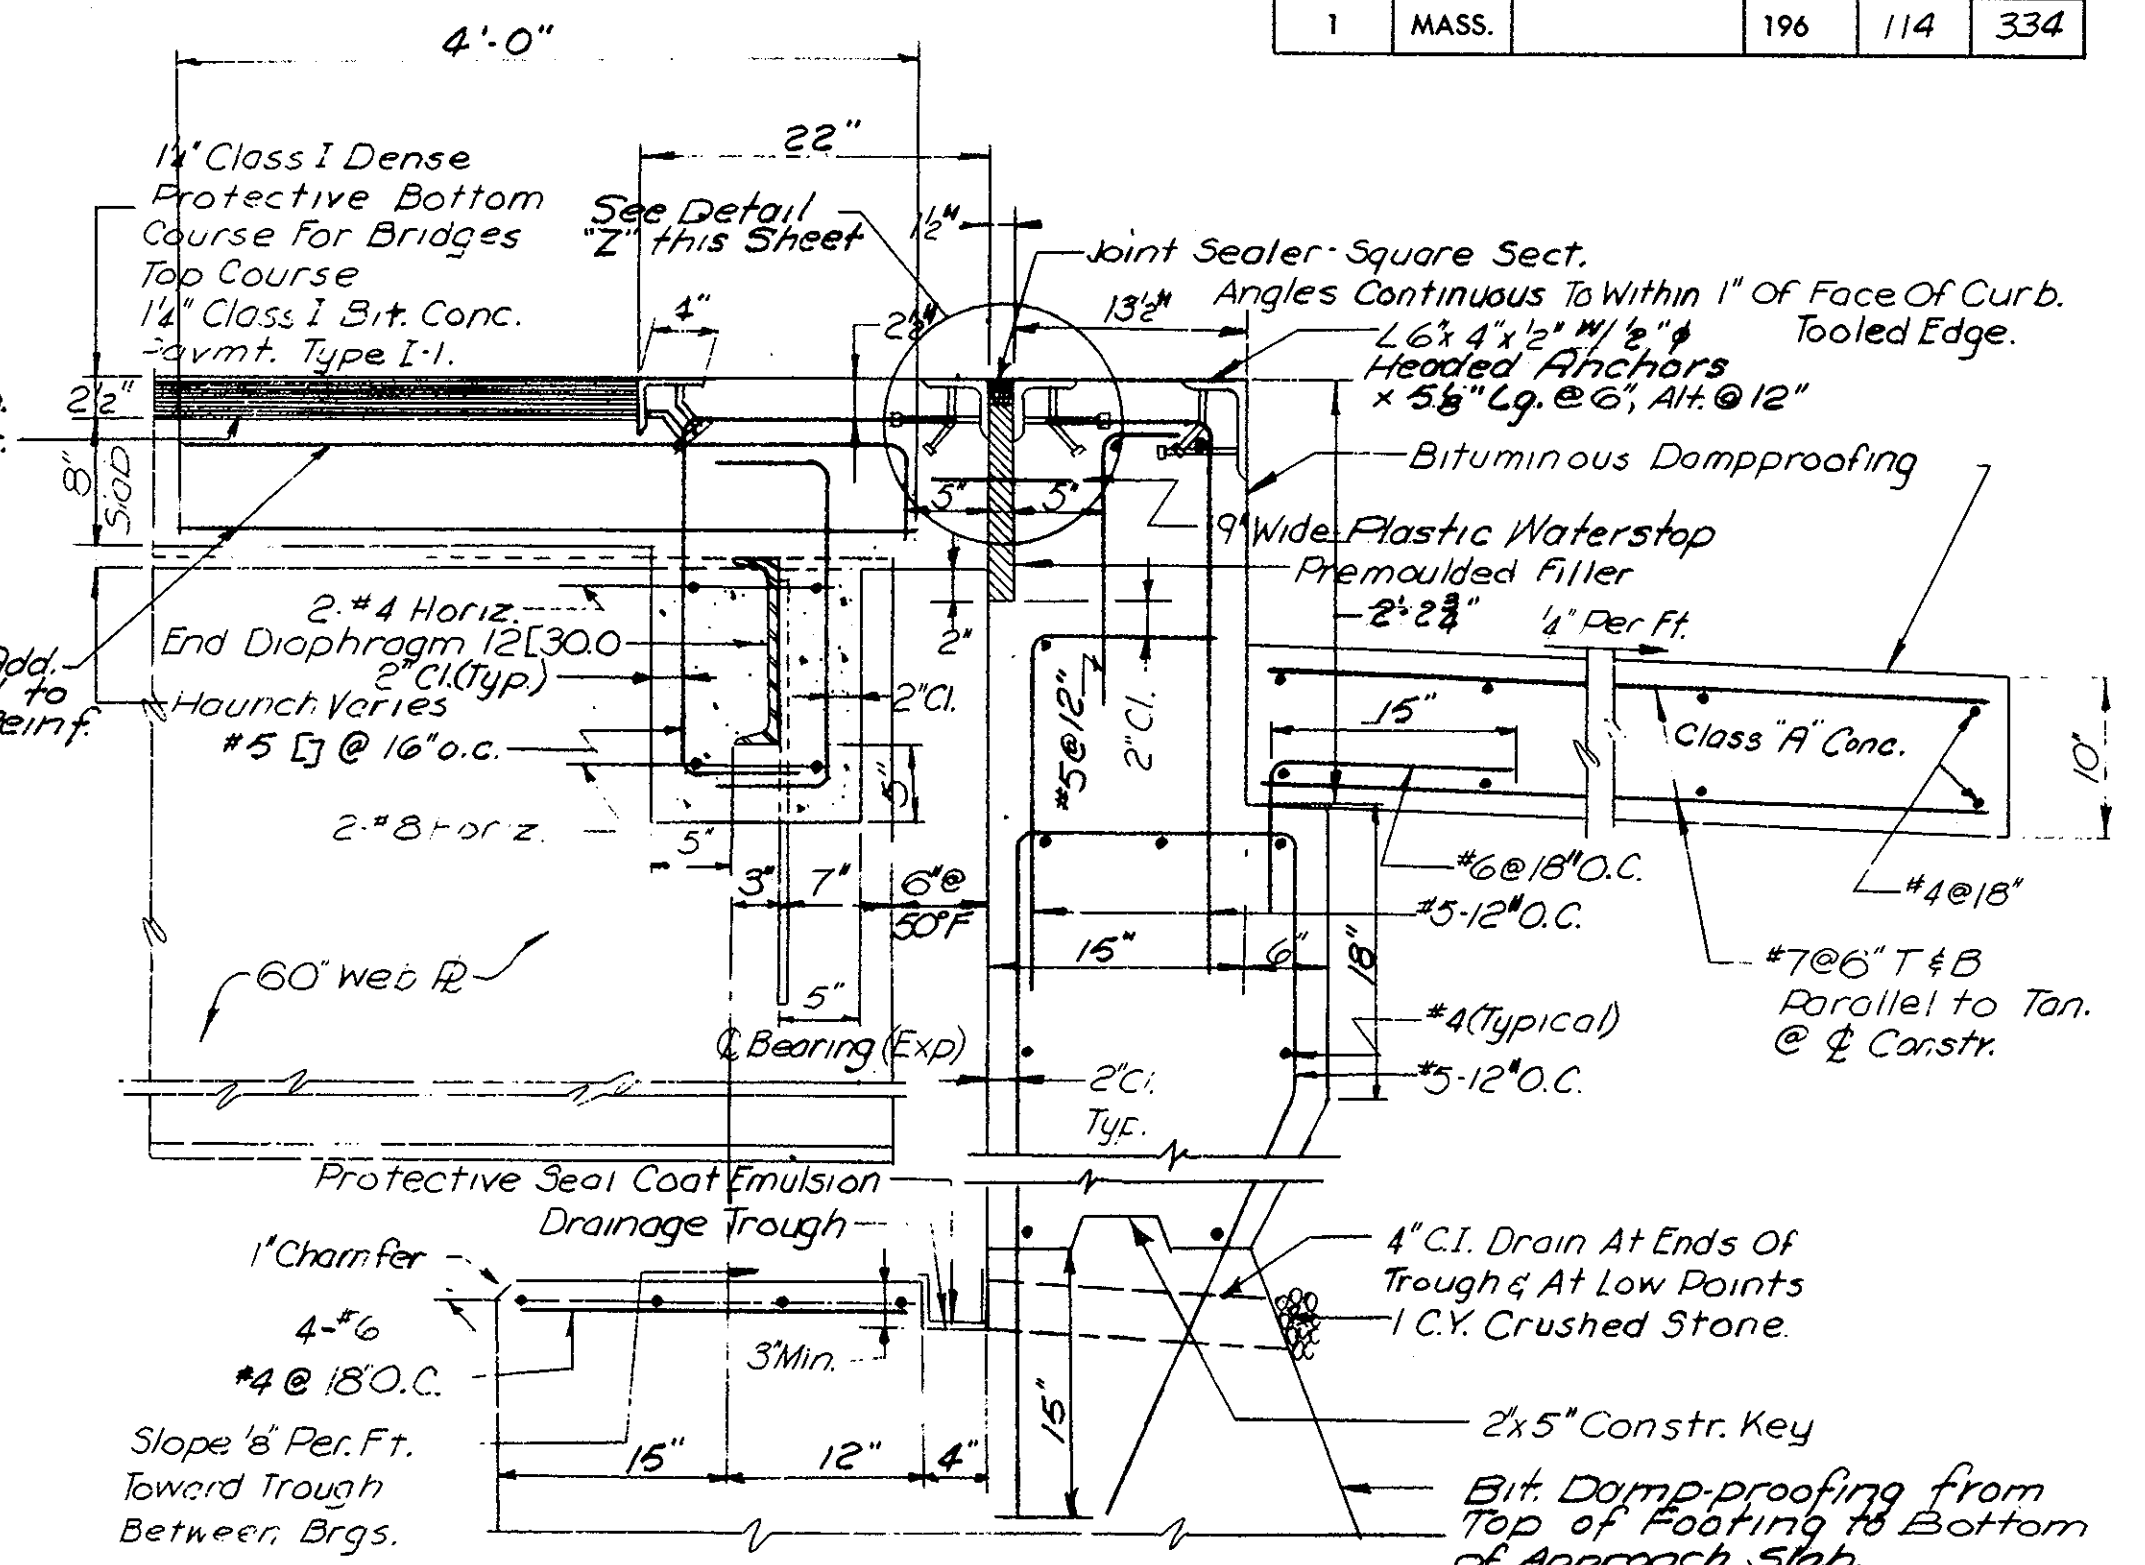 1 MASS. 196 114 334
4'-0"
22"
1¼" Class I Dense
Protective Bottom
Course For Bridges
Top Course
1¼" Class I Bit. Conc.
Pavmt. Type I-1.
See Detail
"Z" this Sheet
1½"
Joint Sealer-Square Sect.
Angles Continuous To Within 1" Of Face Of Curb.
Tooled Edge.
13½"
L 6"x 4"x ½" W/ ½"φ
Headed Anchors
x 5⅛" Lg. @ 6", Alt. @ 12"
4"
2½"
2½"
8"
Slab
Bituminous Dampproofing
5"
5"
9" Wide Plastic Waterstop
Premoulded Filler
2'-2¾"
¼" Per Ft.
2-#4 Horiz.
End Diaphragm 12[30.0
2" Cl. (Typ.)
Add.
to
Reinf.
Haunch Varies
#5 [] @ 16" o.c.
2-#8 Horiz.
2" Cl.
2"
5"
5"
#5@12"
2" Cl.
15"
Class "A" Conc.
10"
3"
7"
6"@
50°F
#6@18" O.C.
#5-12" O.C.
#4@18"
15"
6"
18"
#7@6" T & B
Parallel to Tan.
@ ℄ Constr.
60" Web PL
5"
℄ Bearing (Exp)
#4 (Typical)
#5-12" O.C.
2" Cl.
Typ.
Protective Seal Coat Emulsion
Drainage Trough
1" Chamfer
4-#6
#4 @ 18" O.C.
3" Min.
Slope ⅛" Per. Ft.
Toward Trough
Between Brgs.
15"
12"
4"
15"
4" C.I. Drain At Ends Of
Trough & At Low Points
1 C.Y. Crushed Stone.
2"x5" Constr. Key
Bit. Damp-proofing from
Top of Footing to Bottom
of Approach Slab.